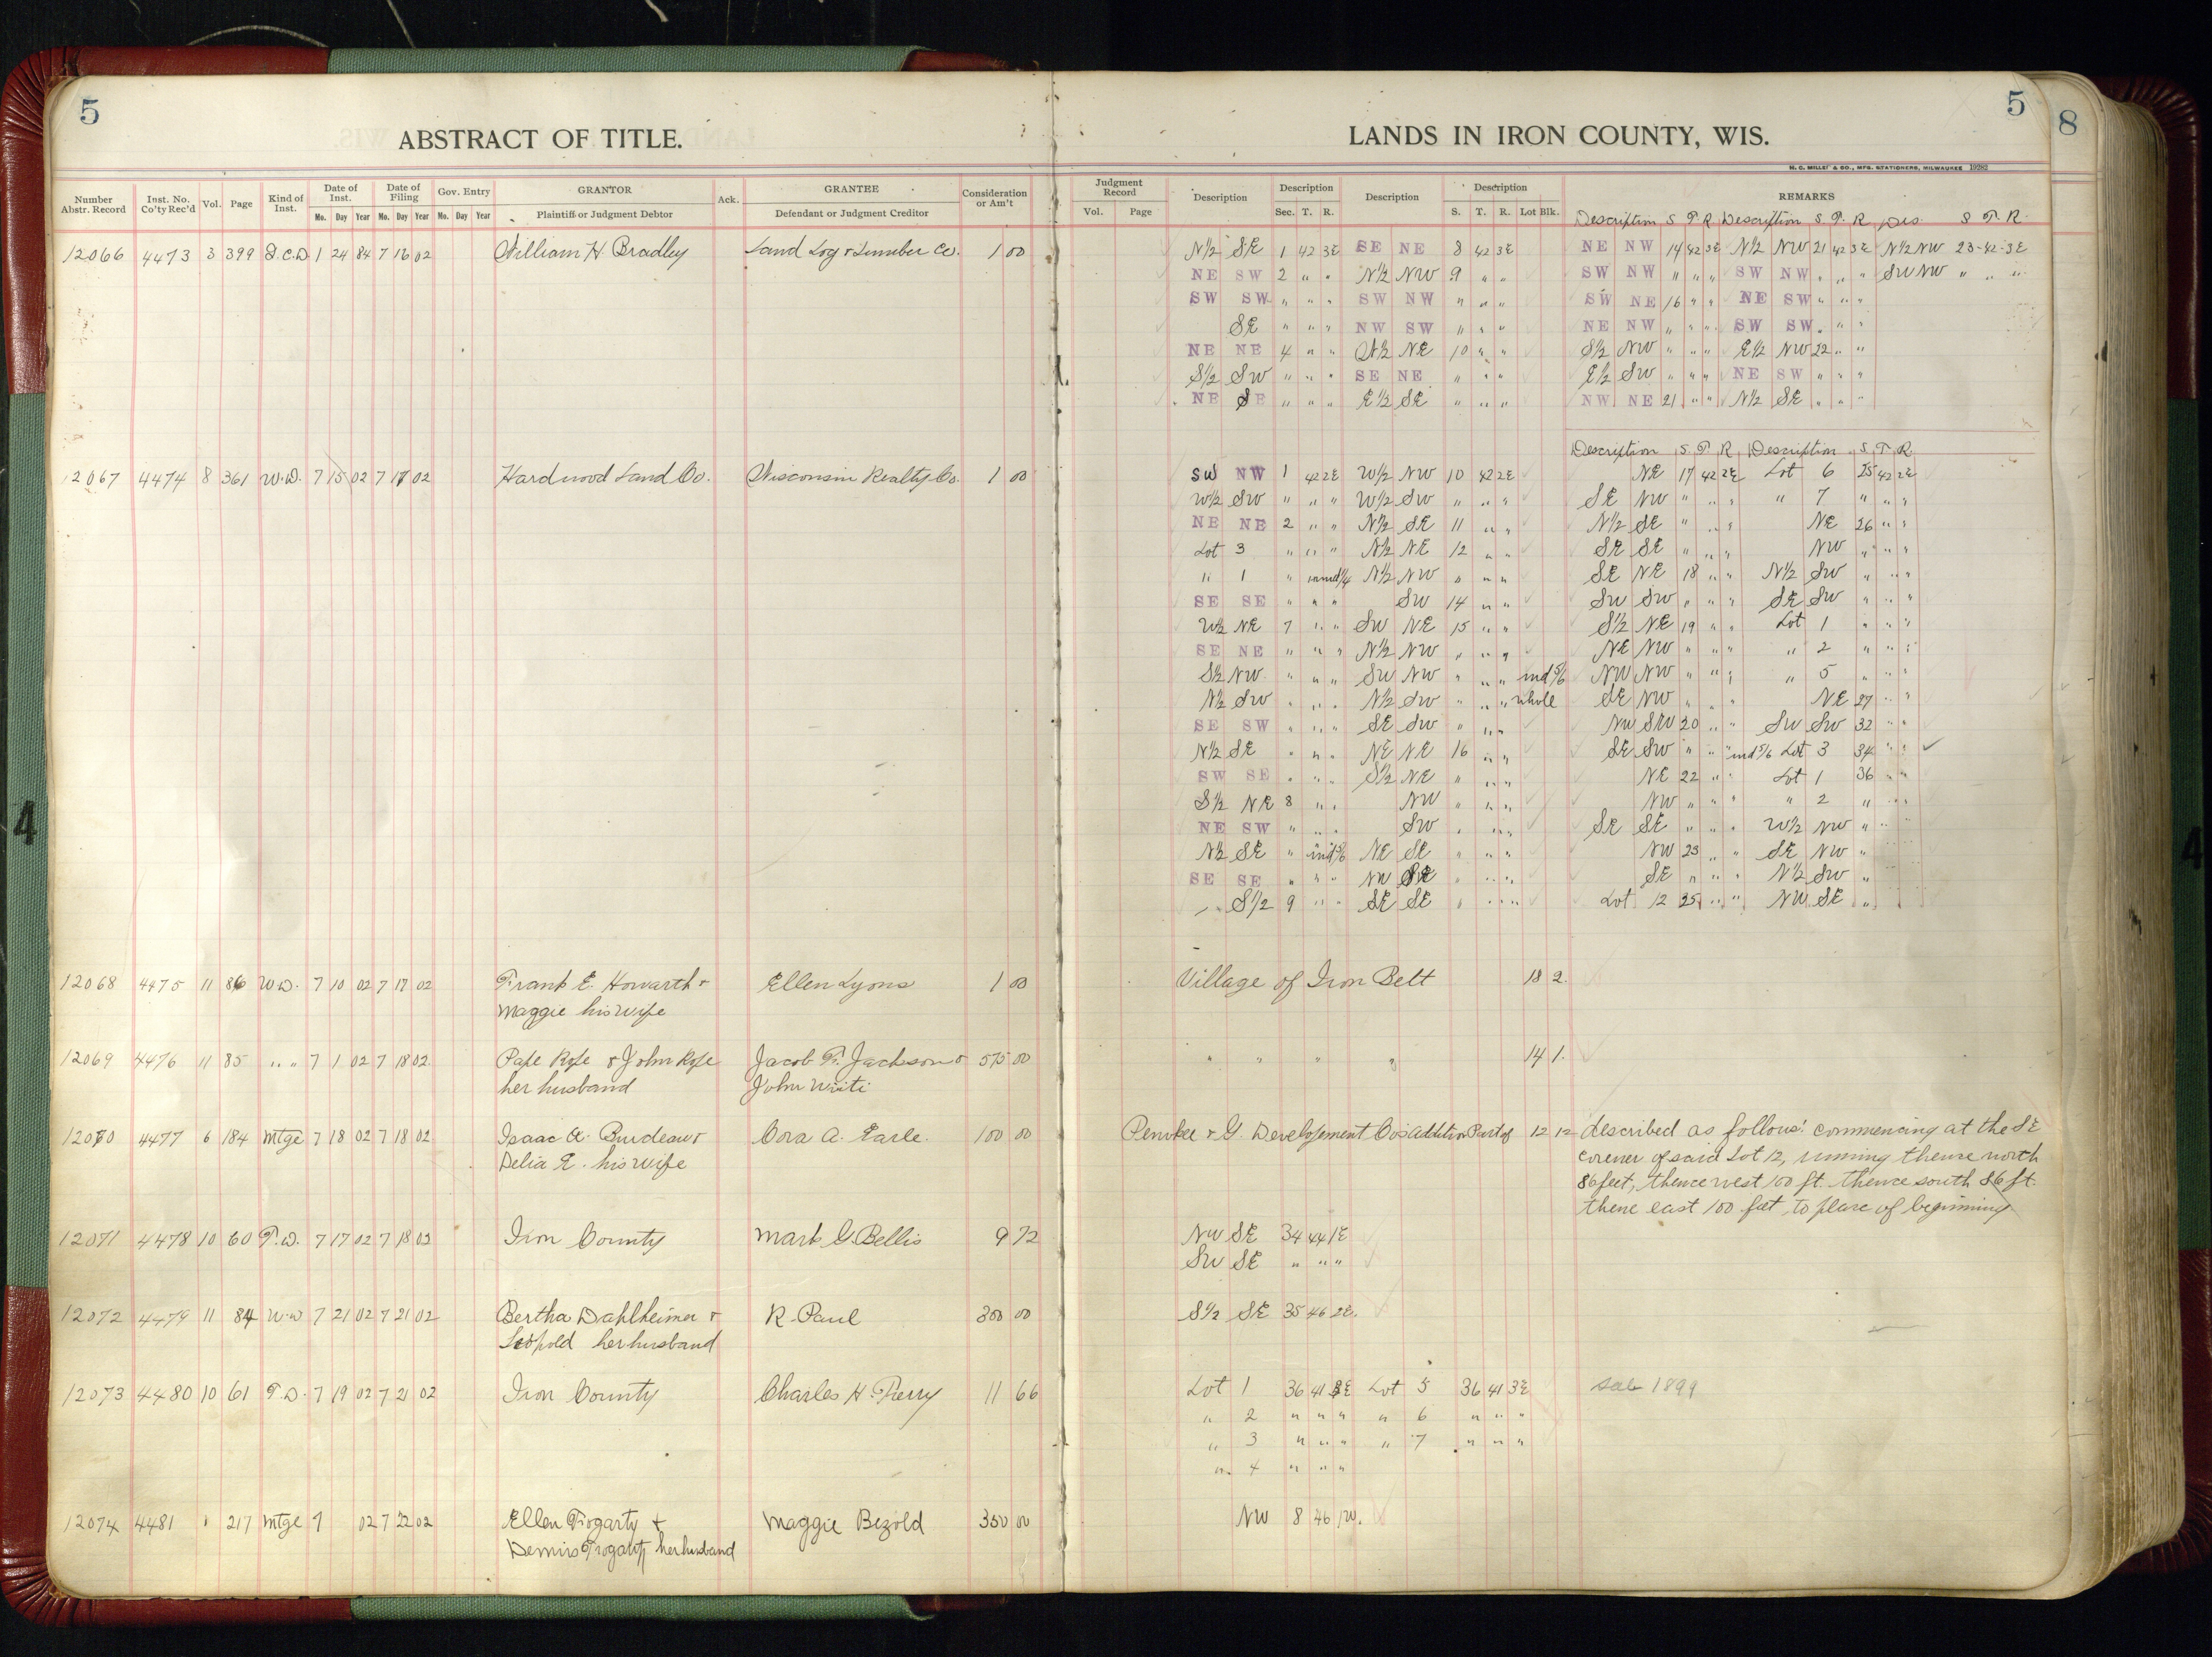 5
5
8
ABSTRACT OF TITLE.
LANDS IN IRON COUNTY, WIS.
H. C. MILLER & CO., MFG. STATIONERS, MILWAUKEE 19282
Number Abstr. Record Inst. No. Co'ty Rec'd Vol. Page Kind of Inst. Date of Inst. Date of Filing Gov. Entry GRANTOR Ack. GRANTEE Consideration or Am't Judgment Record Description Description Description Description REMARKS
Mo. Day Year Mo. Day Year Mo. Day Year Plaintiff or Judgment Debtor Defendant or Judgment Creditor Vol. Page Sec. T. R. S. T. R. Lot Blk.
Description S T. R Description S. T. R Des S T. R.
12066 4473 3 399 1 24 84 7 16 02 William H. Bradley Land Log & Lumber Co. 1 00 N½ SE 1 42 3E SE NE 8 42 3E NE NW 14 42 3E N½ NW 21 42 3E N½ NW 23-42-3E
NE SW 2 " " N½ NW 9 " " SW NW " " " SW NW " " " SW NW " " "
SW SW " " " SW NW " " " SW NE 16 " " NE SW " " "
SE " " " NW SW " " " NE NW " " " SW SW " " "
NE NE 4 " " W½ NE 10 " " S½ NW " " " E½ NW 22 " "
S½ SW " " " SE NE " " " E½ SW " " " NE SW " " "
NE SE " " " E½ SE " " " NW NE 21 " " N½ SE " " "
Description S T. R Description S T R
12067 4474 8 361 W.D. 7 15 02 7 17 02 Hardwood Land Co. Wisconsin Realty Co. 1 00 SW NW 1 42 2E W½ NW 10 42 2E NE 17 42 2E Lot 6 25 42 2E
W½ SW " " " W½ SW " " " SE NW " " " " 7 " " "
NE NE 2 " " N½ SE 11 " " N½ SE " " " NE 26 " "
Lot 3 " " " N½ NE 12 " " SE SE " " " NW " " "
" 1 " und ¼ N½ NW " " " SE NE 18 " " N½ SW " " "
SE SE " " " SW 14 " " SW SW " " " SE SW " " "
W½ NE 7 " " SW NE 15 " " S½ NE 19 " " Lot 1 " " "
SE NE " " " N½ NW " " " NE NW " " " " 2 " " "
S½ NW " " " SW NW " " " und 5/6 NW NW " " " " 5 " " "
N½ SW " " " N½ SW " " " whole SE NW " " " NE 27 " "
SE SW " " " SE SW " " " NW SW 20 " " SW SW 32 " "
N½ SE " " " NE NE 16 " " SE SW " " " und 5/6 Lot 3 34 " "
SW SE " " " S½ NE " " " NE 22 " " Lot 1 36 " "
S½ NE 8 " " NW " " " NW " " " " 2 " " "
NE SW " " " SW " " " SE SE " " " W½ NW " " "
N½ SE " und 5/6 NE SE " " " NW 23 " " SE NW "
SE SE " " " NW SE " " " SE " " " N½ SW "
S½ 9 " " SE SE " " " Lot 12 25 " " NW SE "
12068 4475 11 86 W.D. 7 10 02 7 17 02 Frank E. Howarth & Ellen Lyons 1 00 Village of Iron Belt 18 2
Maggie his wife
12069 4476 11 85 " " 7 1 02 7 18 02 & John Jacob F. Jackson & 575 00 " " " " 14 1
her husband John
12070 4477 6 184 Mtge 7 18 02 7 18 02 Isaac A. Burdeau & Cora A. Earle. 100 00 Penokee & G. Developement Co's Addition Part of 12 12 described as follows: commencing at the SE
Delia E. his wife corener of said Lot 12, running thence north
86 feet, thence west 100 ft. thence south 86 ft.
thene east 100 feet to place of beginning
12071 4478 10 60 T.D. 7 17 02 7 18 02 Iron County Mark G. Bellis 9 72 NW SE 34 44 1E
SW SE " " "
12072 4479 11 84 W.D 7 21 02 7 21 02 Bertha Dahlheimer & R. Paul 300 00 S½ SE 35 46 2E.
Leopold her husband
12073 4480 10 61 T.D. 7 19 02 7 21 02 Iron County Charles H. 11 66 Lot 1 36 41 3E Lot 5 36 41 3E Sale 1899
" 2 " " " " 6 " " "
" 3 " " " " 7 " " "
" 4 " " "
12074 4481 217 Mtge 7 02 7 22 02 Ellen Fogarty & Maggie Bezold 350 00 NW 8 46 1W.
Dennis Fogarty her husband
4
4